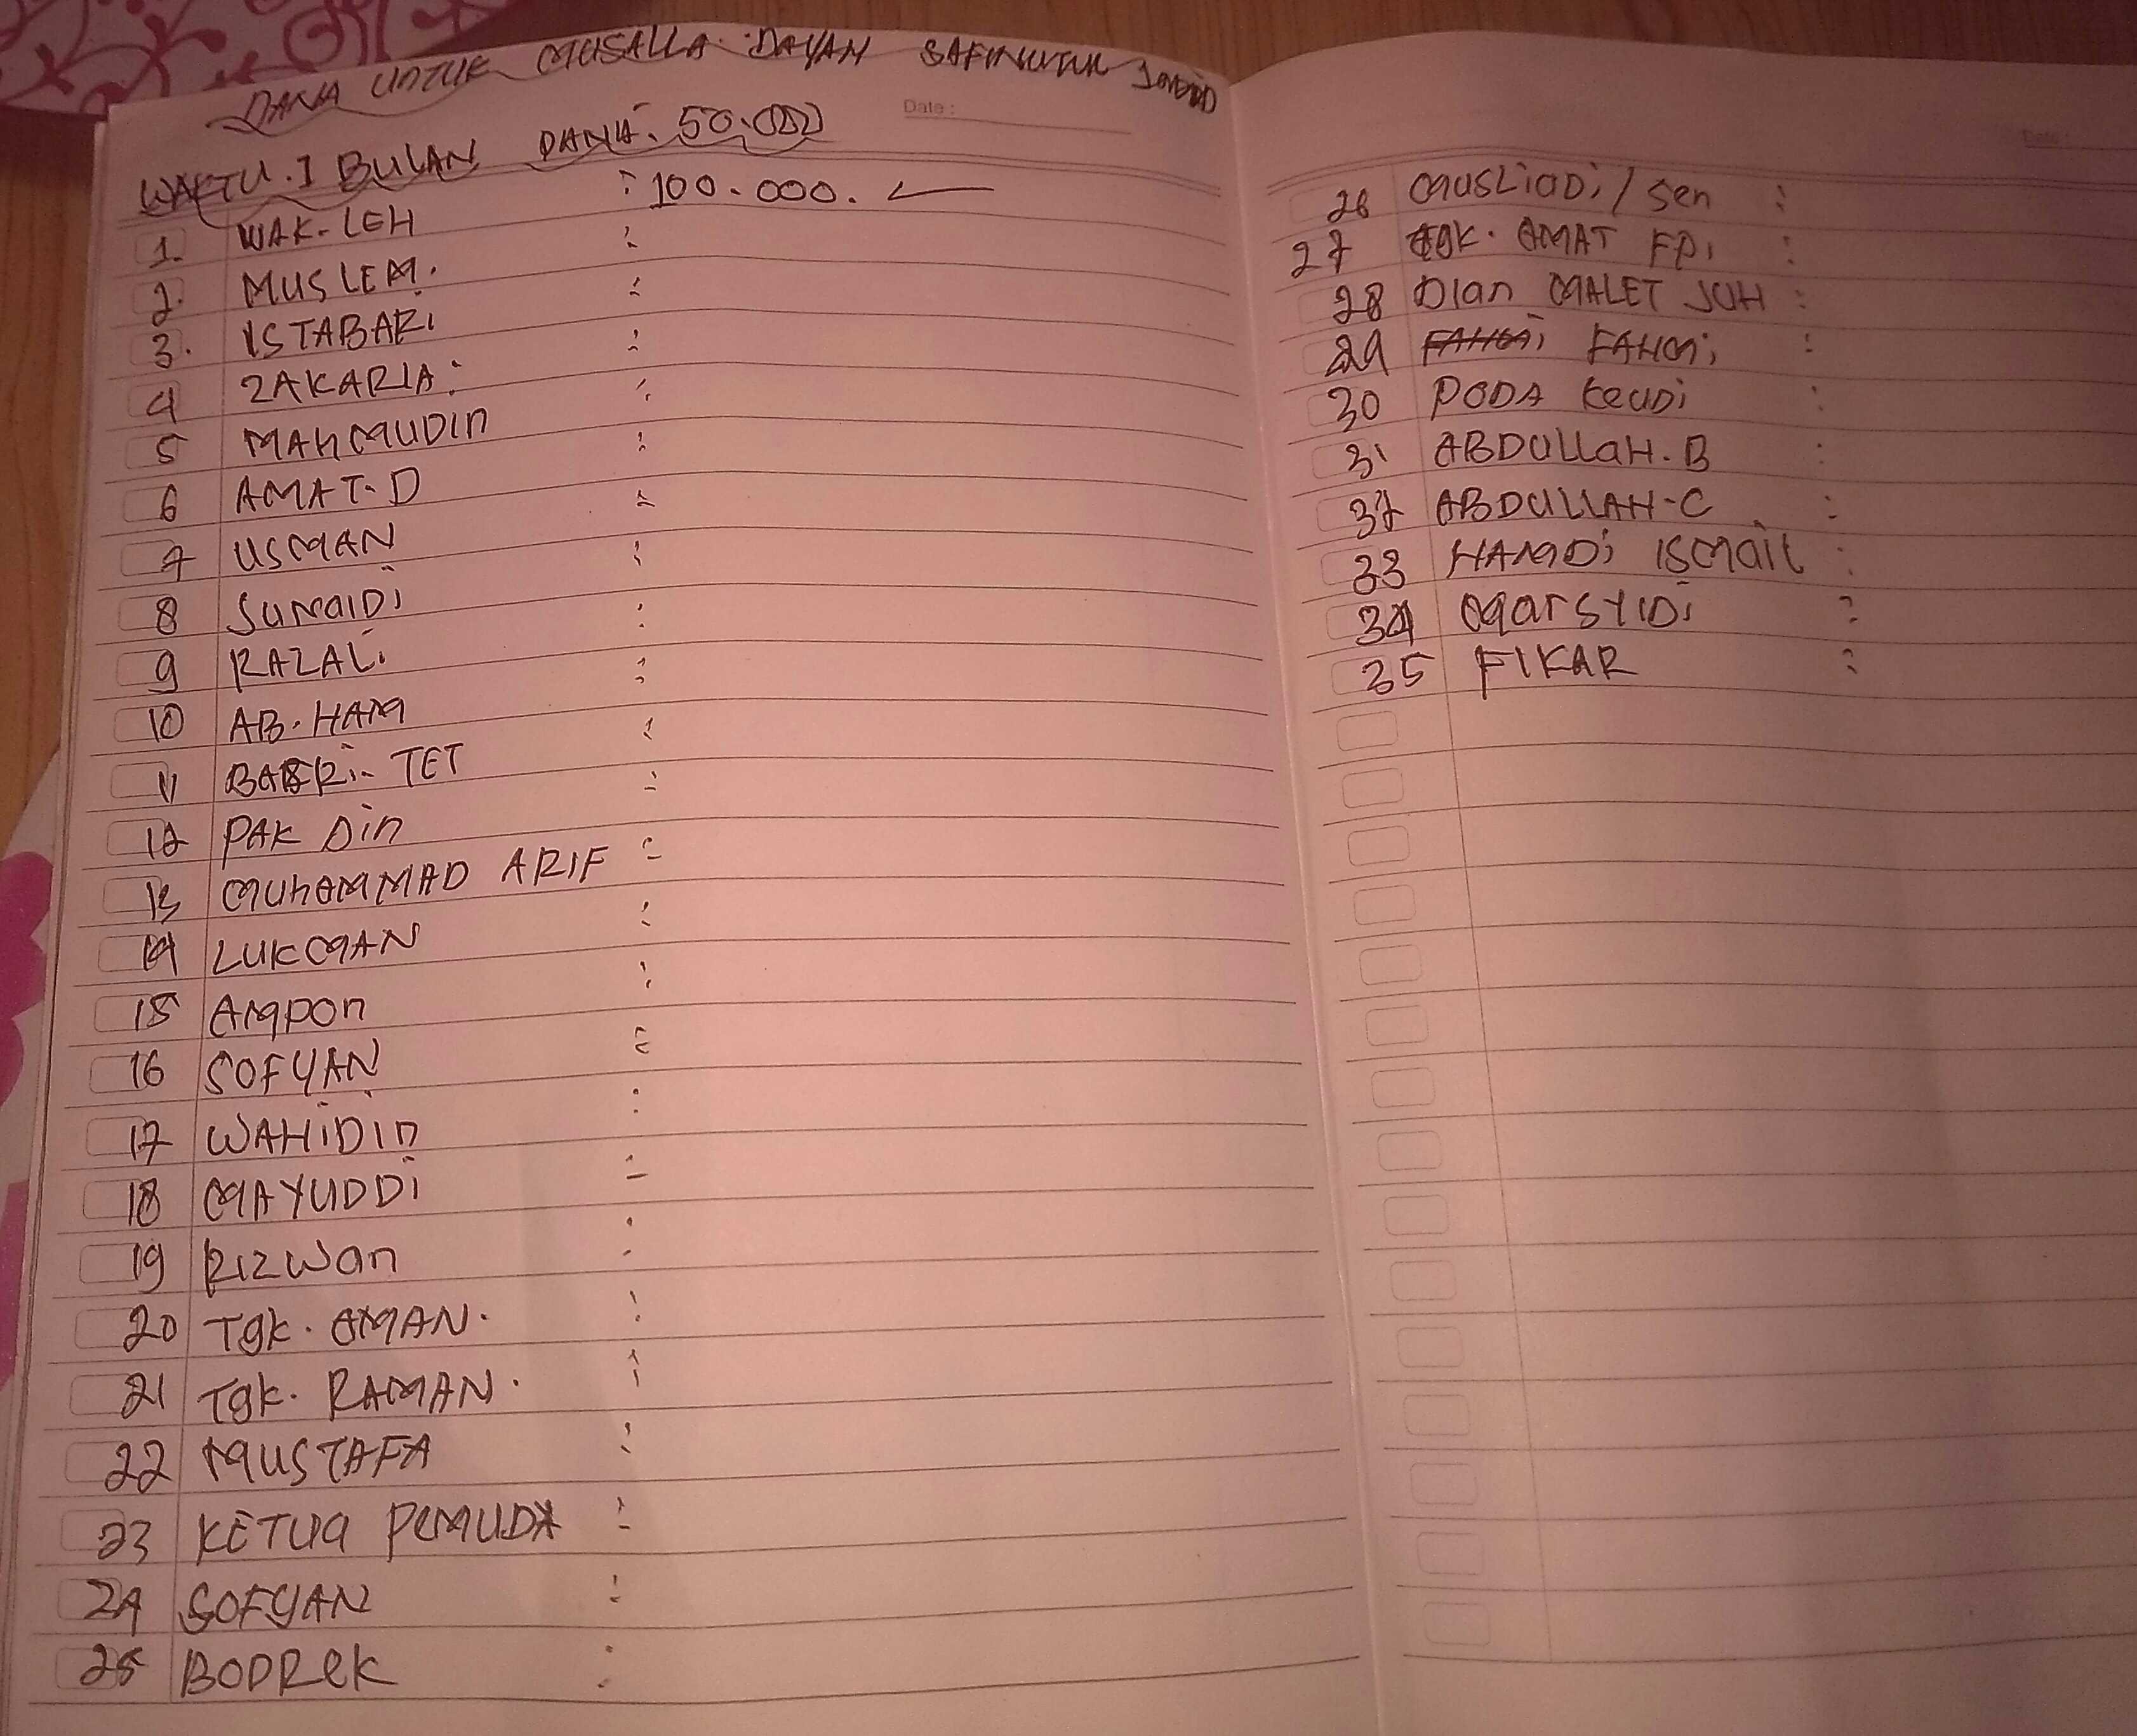 DANA UNTUK MUSALLA DAYAH
Date:
WAKTU. 1 BULAN DANA. 50.000
1. WAK-LEH : 100.000.
2. MUSLEM. :
3. ISTABARI :
4 ZAKARIA: :
5 MAHMUDIN :
6 AMAT-D :
7 USMAN :
8 JUNAIDI :
9 RAZALI :
10 AB. HAM :
11 BASRI- TET :
12 PAK Din :
13 MUHAMMAD ARIF :
14 LUKMAN :
15 AMPON :
16 SOFYAN :
17 WAHIDIN :
18 MAYUDDI :
19 RIZWAN :
20 Tgk. AMAN. :
21 Tgk. RAMAN. :
22 MUSTAFA :
23 KETUA PEMUDA :
24 SOFYAN :
25 BODREK :
Date:
26 MUSLIADI / Sen :
27 TGK. AMAT FPI :
28 Dian MALET JUH :
29 FAHMI FAHMI :
30 PODA Keudi :
31 ABDULLAH. B :
32 ABDULLAH-C :
33 HAMDI ISMAIL :
34 MARSYIDI :
35 FIKAR :